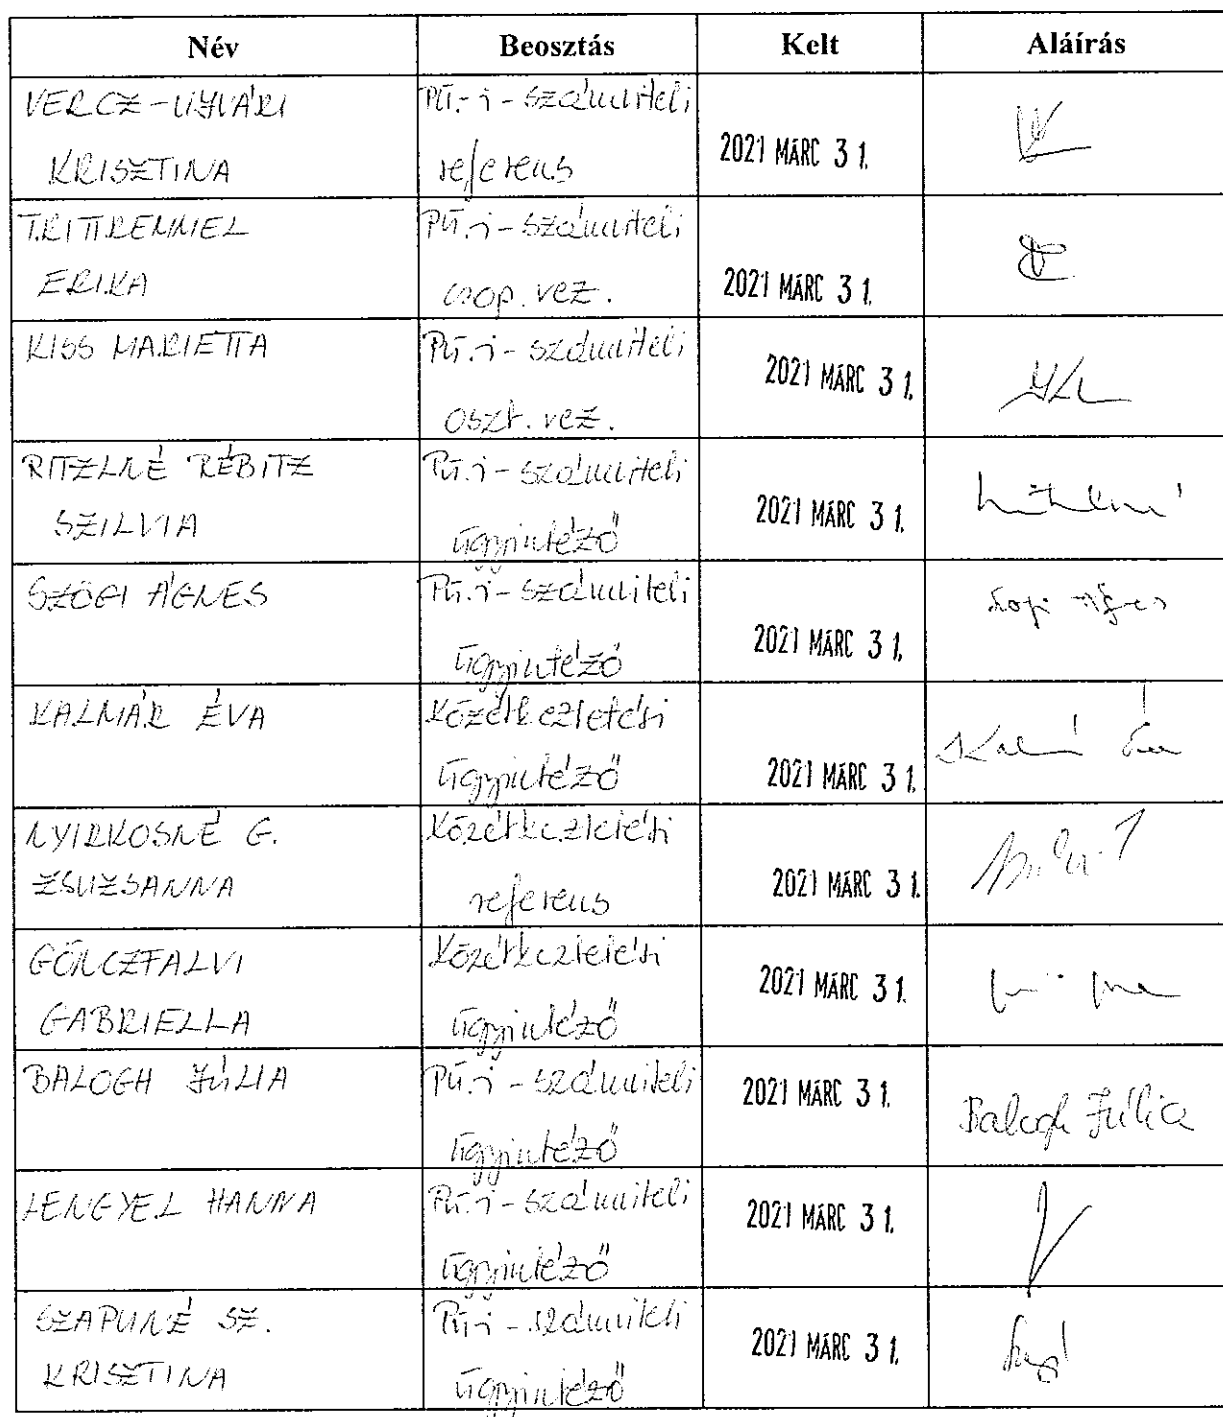 Név Beosztás Kelt Aláírás
VERCZ-UJVÁRI Pü.-i-számviteli
KRISZTINA referens 2021 MÁRC 31.
TRITTREMMEL Pü.i-számviteli
ERIKA csop. vez. 2021 MÁRC 31.
KISS MARIETTA Pü.i-számviteli
oszt. vez. 2021 MÁRC 31.
RITZLNÉ RÉBITZ Pü.i-számviteli
SZILVIA ügyintéző 2021 MÁRC 31.
SZÖGI ÁGNES Pü.i-számviteli
ügyintéző 2021 MÁRC 31.
KALMÁR ÉVA Közétkeztetési
ügyintéző 2021 MÁRC 31. Kalmár Éva
NYIRKOSNÉ G. Közétkeztetési
ZSUZSANNA referens 2021 MÁRC 31.
GÖRCZFALVI Közétkeztetési
GABRIELLA ügyintéző 2021 MÁRC 31.
BALOGH JÚLIA Pü.i-számviteli
ügyintéző 2021 MÁRC 31. Balogh Júlia
LENGYEL HANNA Pü.i-számviteli
ügyintéző 2021 MÁRC 31.
SZAPUNÉ SZ. Pü.i-számviteli
KRISZTINA ügyintéző 2021 MÁRC 31.